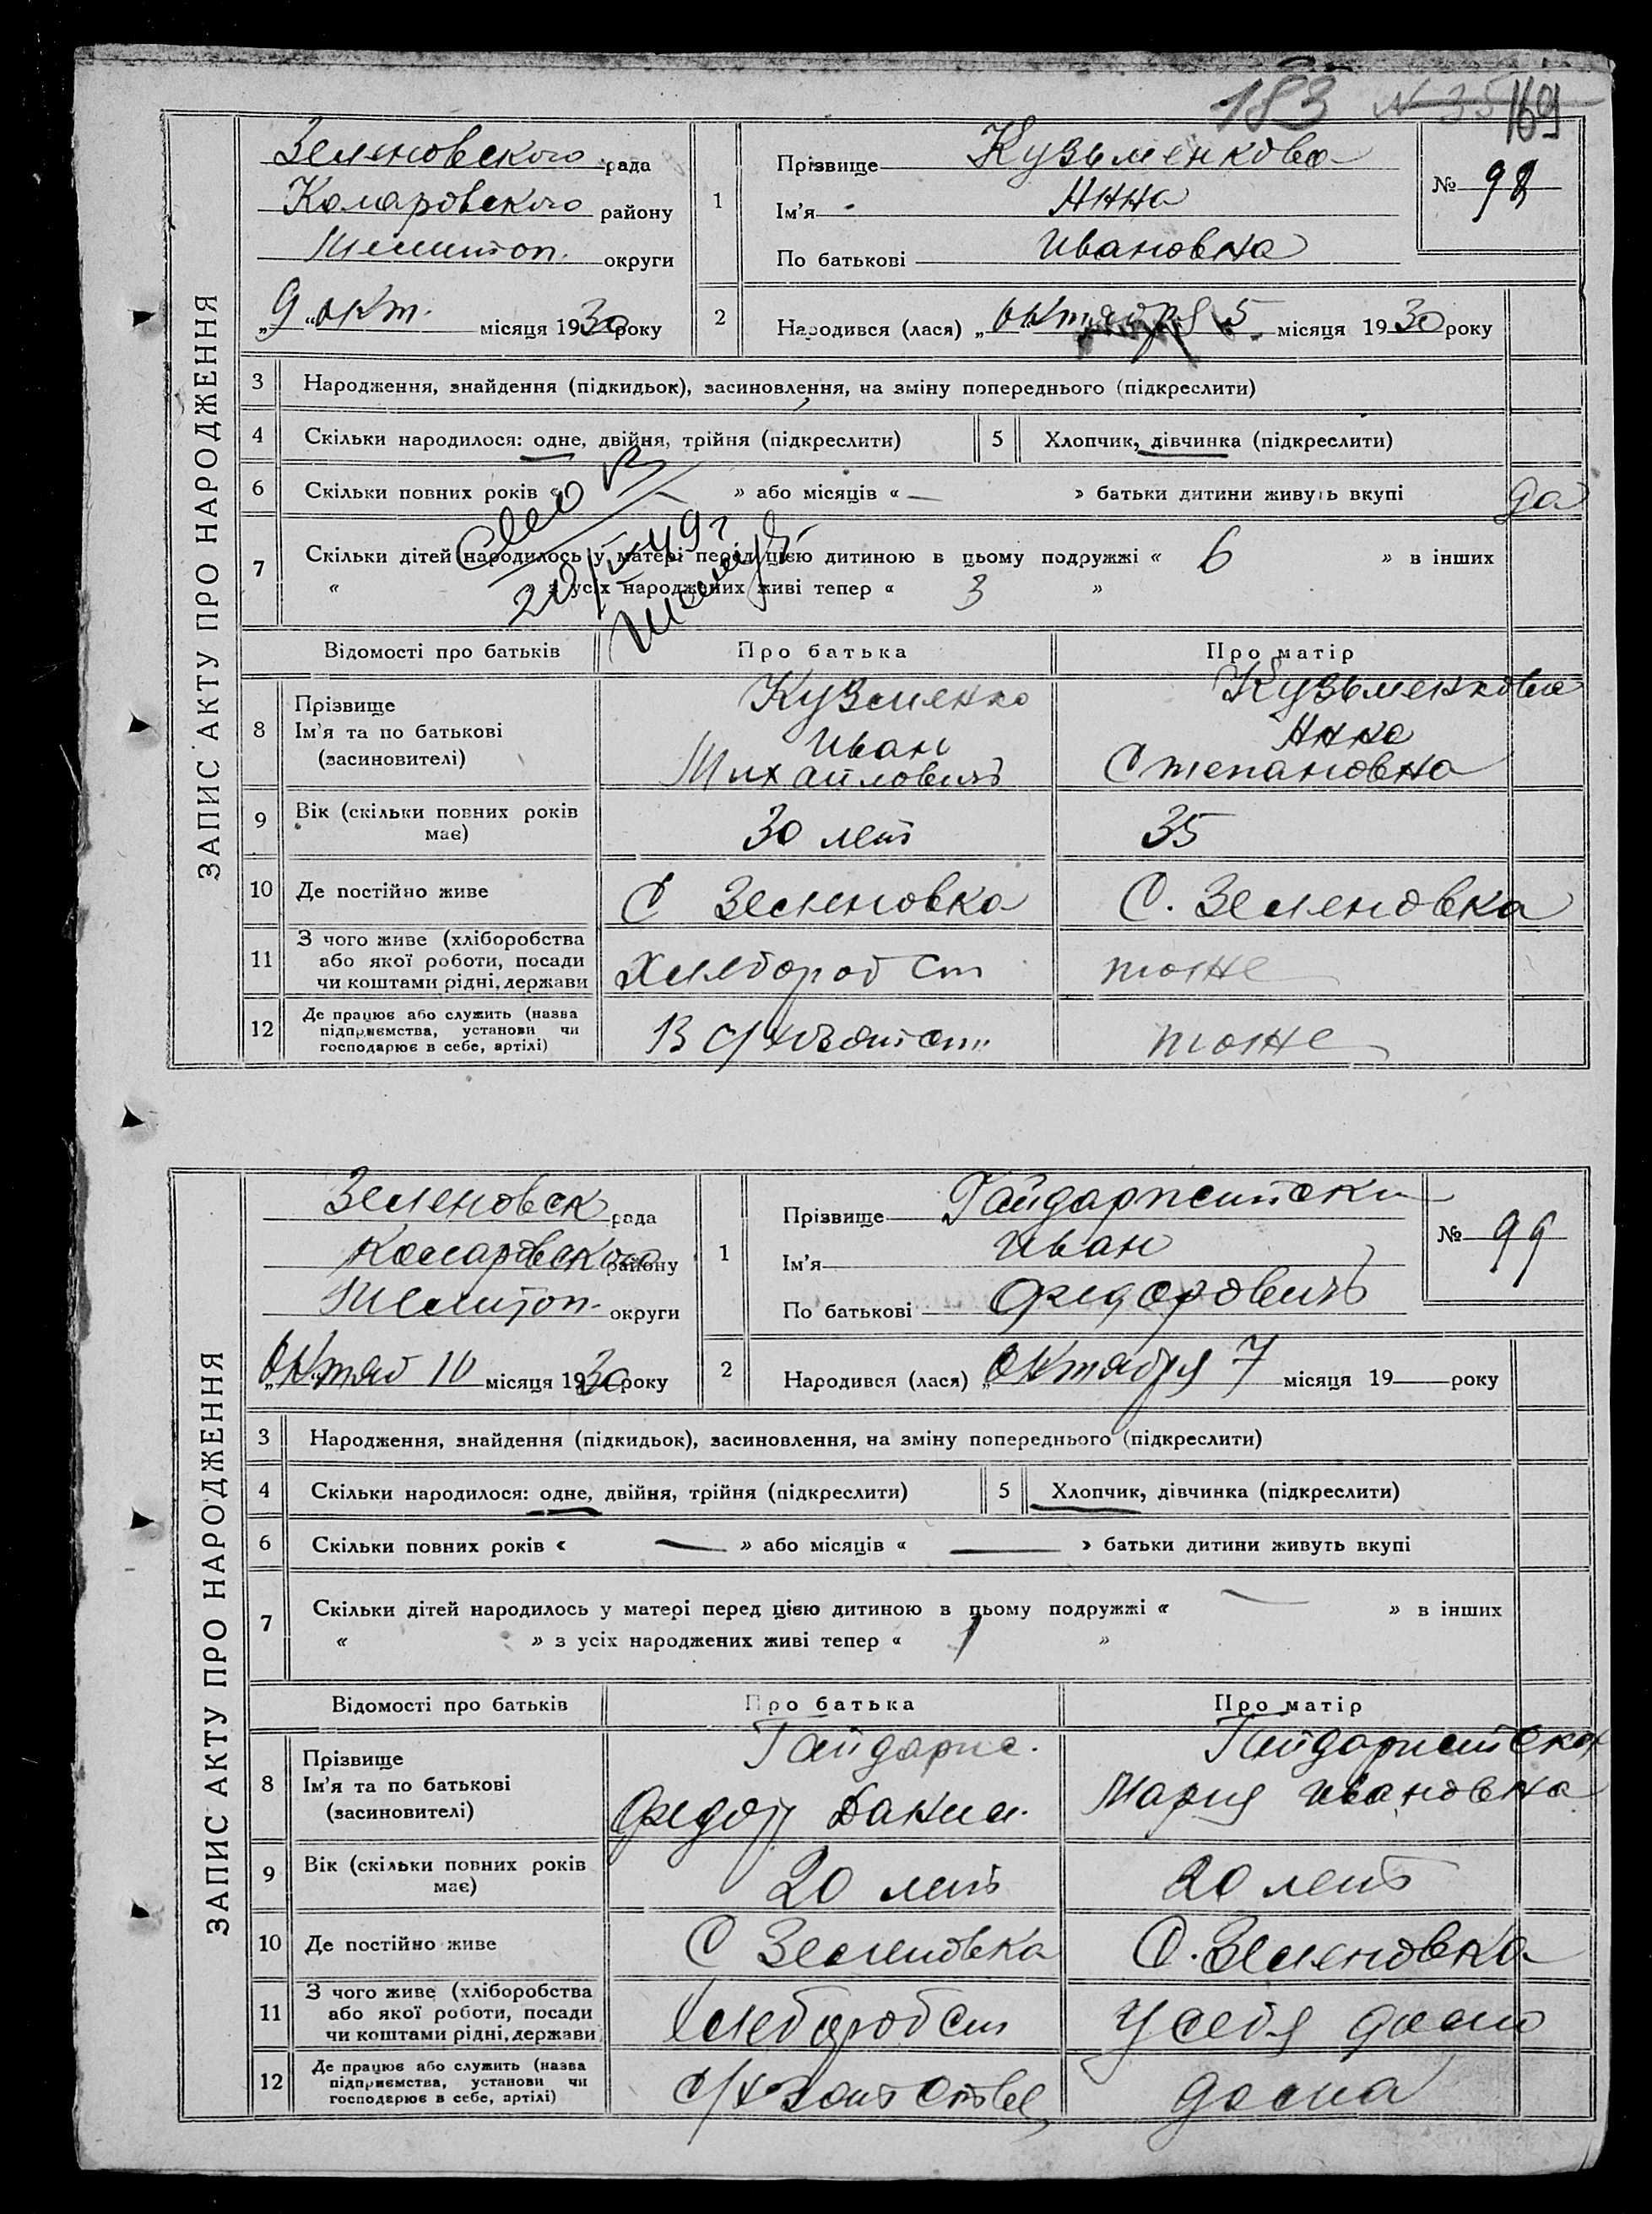 183 169
ЗАПИС АКТУ ПРО НАРОДЖЕННЯ
Зеленовского рада
Комаровского району
Мелитоп. округи
„9“ окт. місяця 1930 року
1
Прізвище Кузьменкова
Ім'я Анна
По батькові Ивановна
№ 98
2
Народився (лася) „ октября 5 місяця 1930 року
3 Народження, знайдення (підкидьок), засиновлення, на зміну попереднього (підкреслити)
4 Скільки народилося: одне, двійня, трійня (підкреслити)
5 Хлопчик, дівчинка (підкреслити)
6 Скільки повних років « » або місяців « — » батьки дитини живуть вкупі да
7 Скільки дітей народилось у матері перед цією дитиною в цьому подружжі « 6 » в інших
« » з усіх народжених живі тепер « 3 »
Відомості про батьків Про батька Про матір
8 Прізвище
Ім'я та по батькові
(засиновителі)
Кузменко
Иван
Михайловичъ
Кузьменкова
Анна
Степановна
9 Вік (скільки повних років має) 30 лет 35
10 Де постійно живе С Зеленовка С. Зеленовка
11 З чого живе (хліборобства
або якої роботи, посади
чи коштами рідні, держави
Хлеборобст
тоже
12 Де працює або служить (назва
підприємства, установи чи
господарює в себе, артілі)
тоже
ЗАПИС АКТУ ПРО НАРОДЖЕННЯ
Зеленовск рада
Комаровского району
Мелитоп. округи
Октяб 10 місяця 1930 року
1
Прізвище
Ім'я Иван
По батькові Федоровичъ
№ 99
2
Народився (лася) „ Октября 7 місяця 19— року
3 Народження, знайдення (підкидьок), засиновлення, на зміну попереднього (підкреслити)
4 Скільки народилося: одне, двійня, трійня (підкреслити)
5 Хлопчик, дівчинка (підкреслити)
6 Скільки повних років « — » або місяців « — » батьки дитини живуть вкупі
7 Скільки дітей народилось у матері перед цією дитиною в цьому подружжі « — » в інших
« » з усіх народжених живі тепер « 1 »
Відомості про батьків Про батька Про матір
8 Прізвище
Ім'я та по батькові
(засиновителі)
Федор Данил.
Мария Ивановна
9 Вік (скільки повних років має) 20 летъ 20 летъ
10 Де постійно живе С Зеленовка С. Зеленовка
11 З чого живе (хліборобства
або якої роботи, посади
чи коштами рідні, держави
Хлеборобст
У себя дома
12 Де працює або служить (назва
підприємства, установи чи
господарює в себе, артілі)
дома